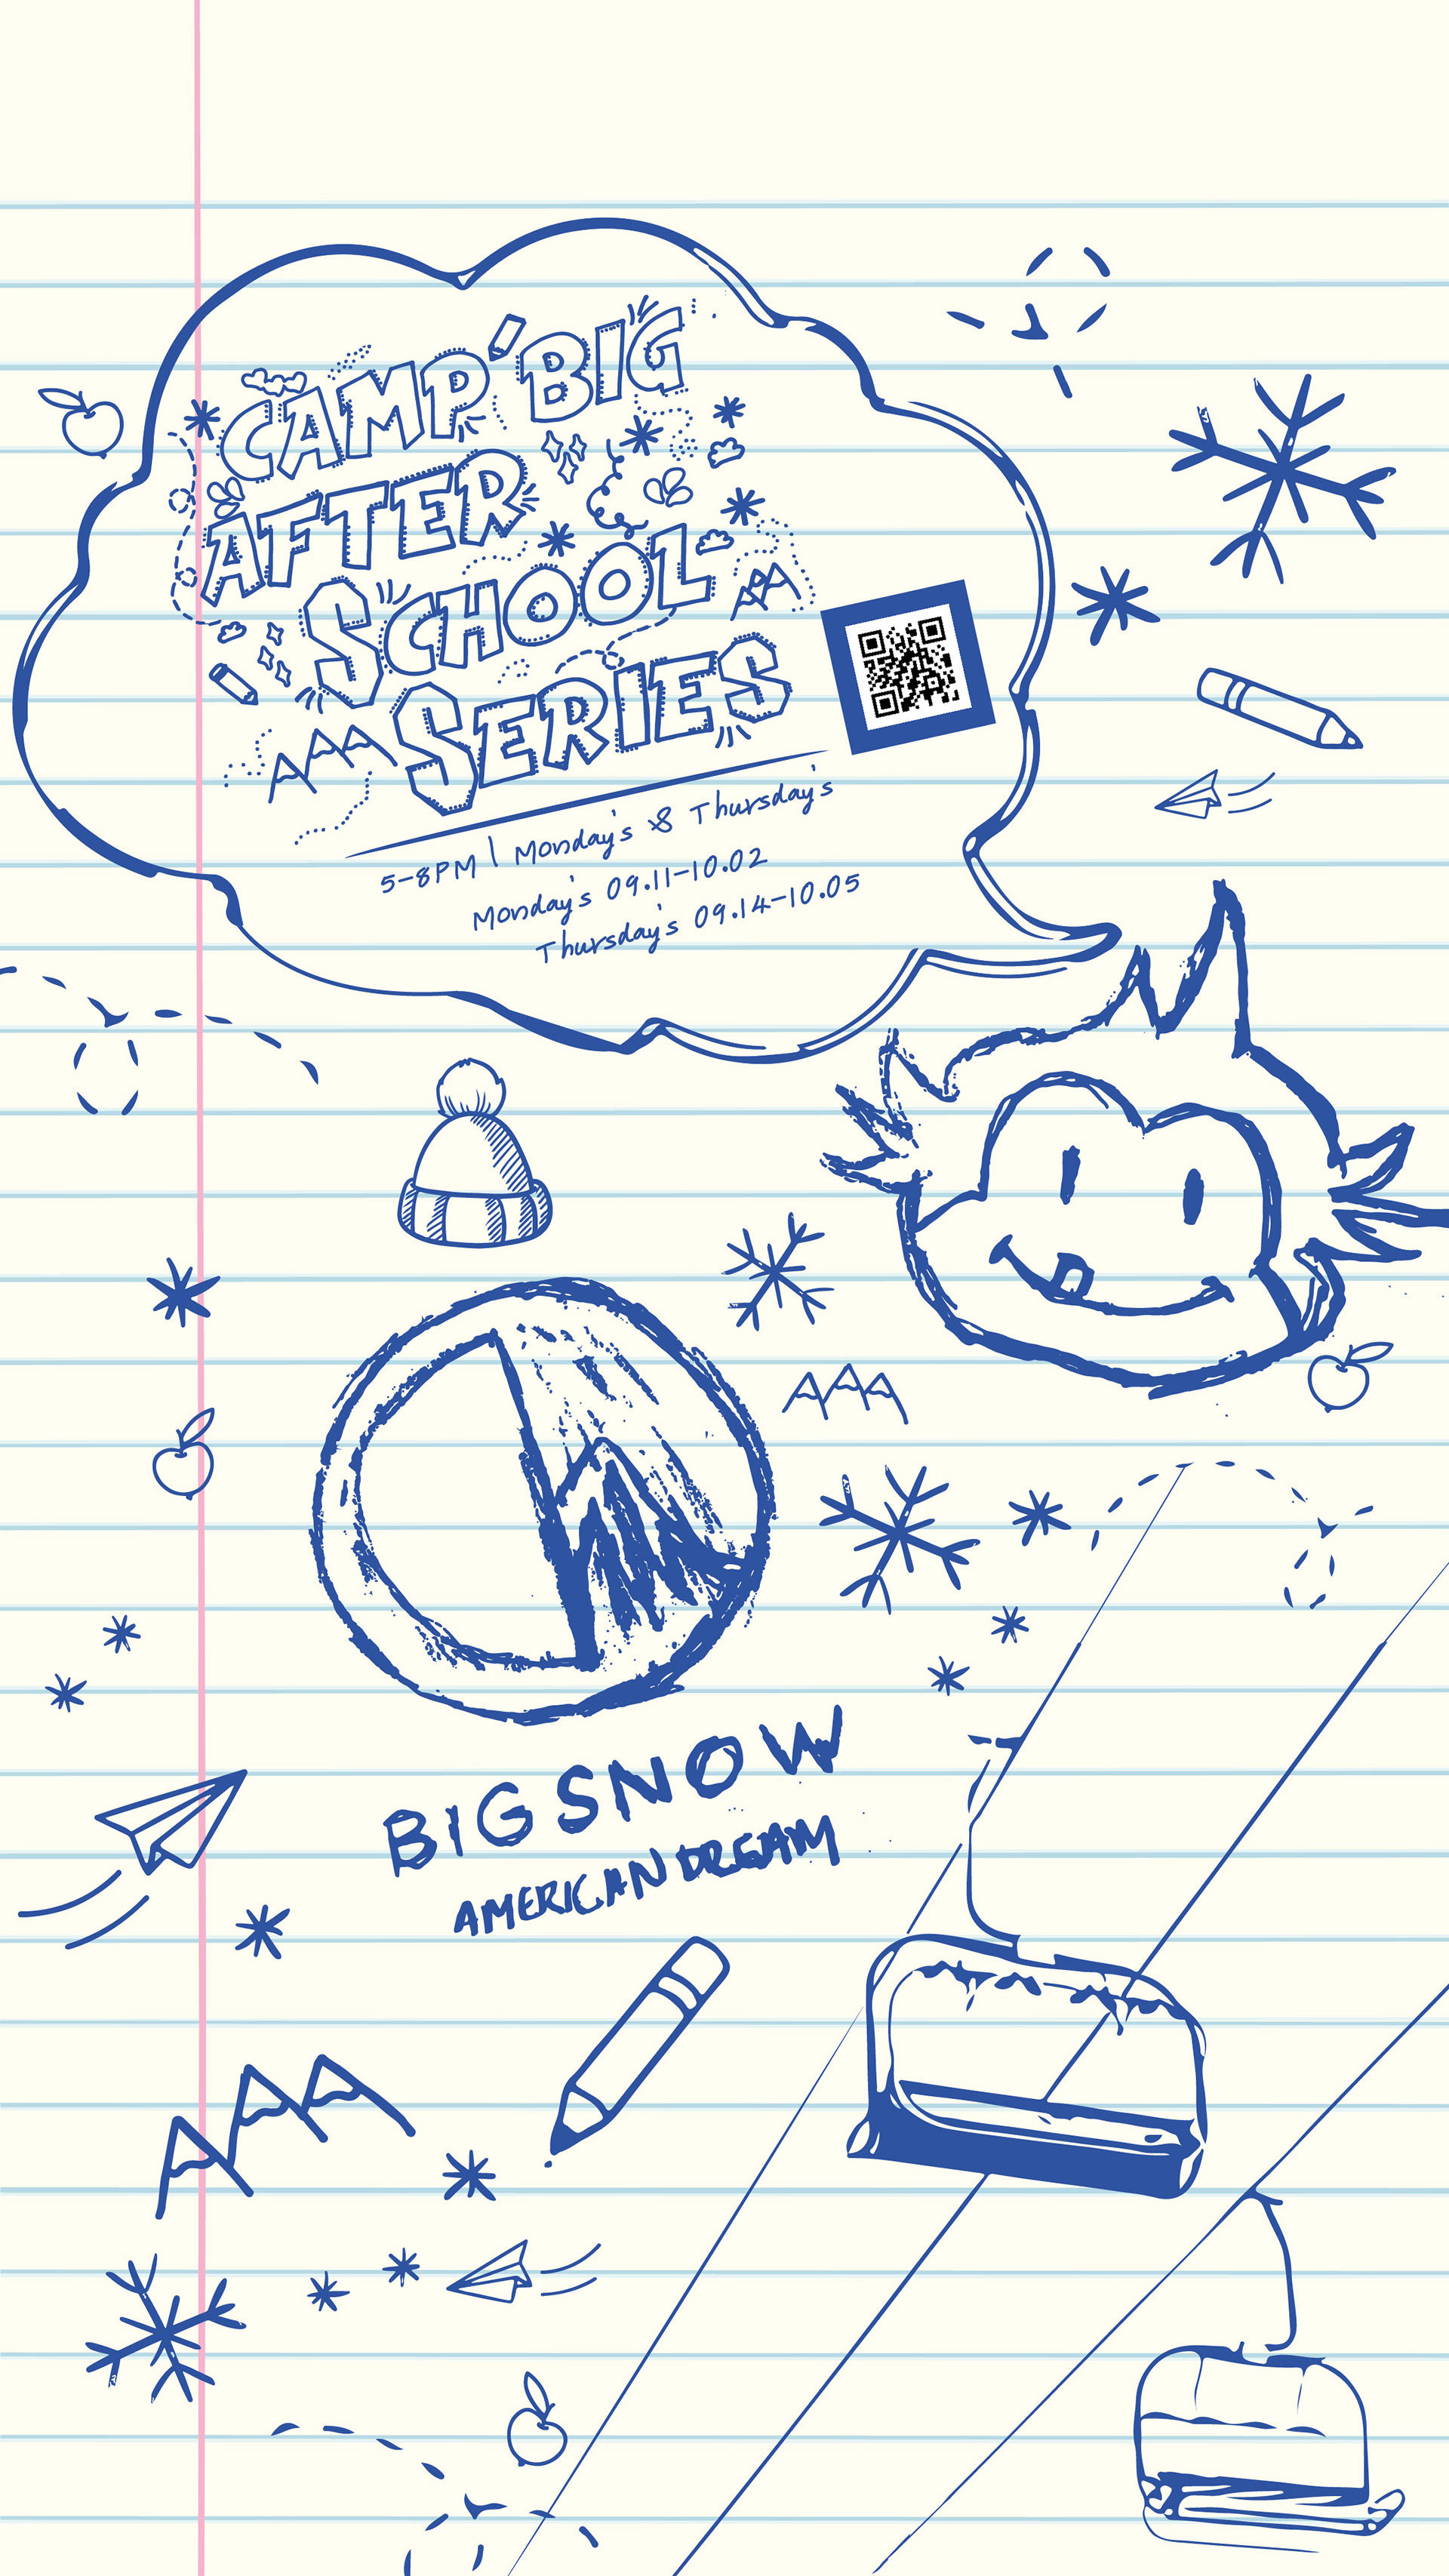 CAMP BIG
AFTER
SCHOOL
SERIES
5-8PM | Monday's & Thursday's
Monday's 09.11-10.02
Thursday's 09.14-10.05
BIG SNOW
AMERICAN DREAM